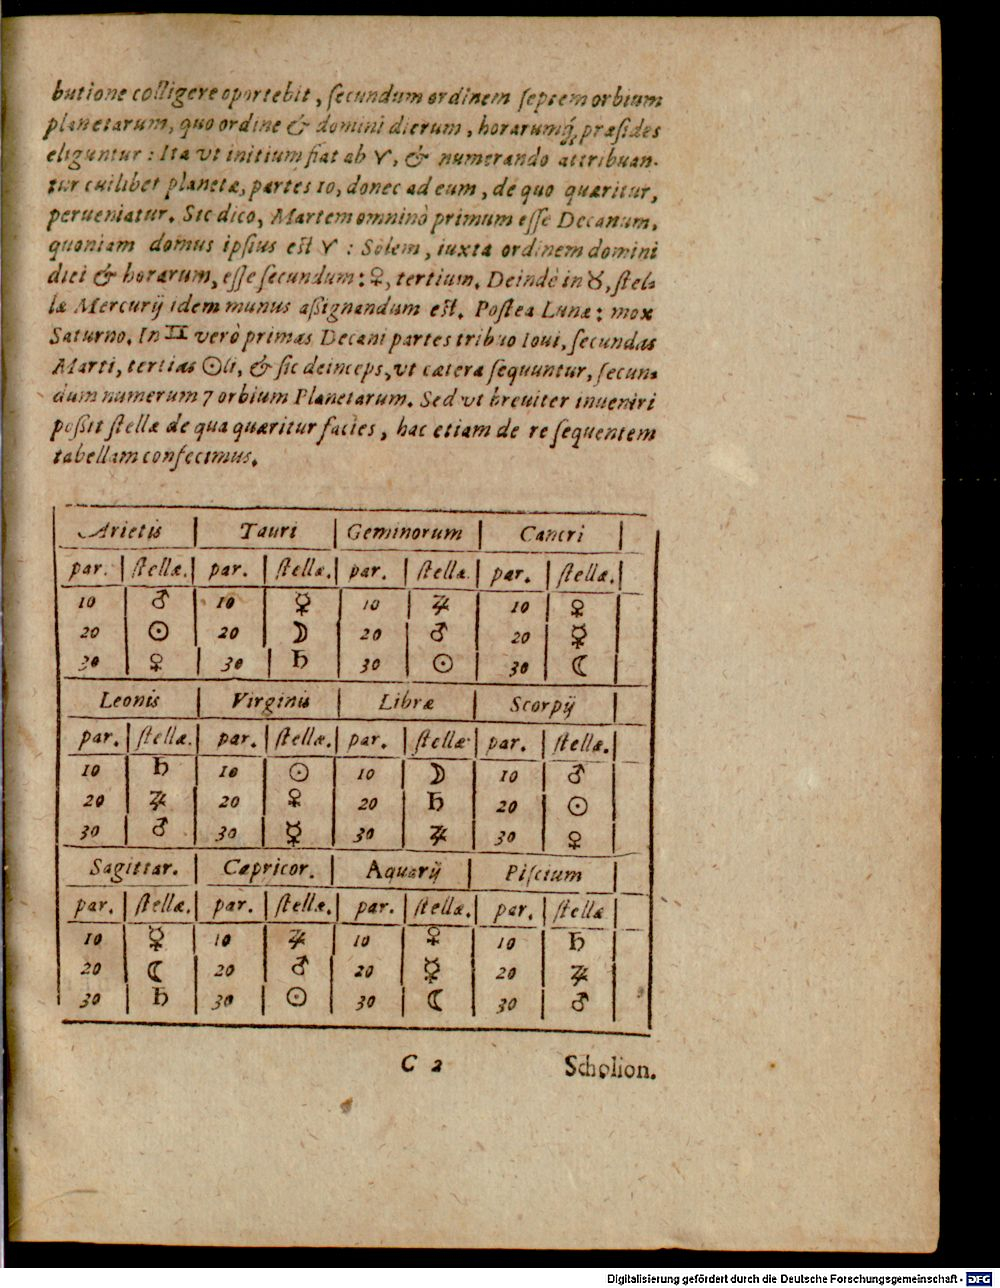 butione colligere oportebit, ſecundum ordinem ſeptem orbium
planetarum, quo ordine & domini dierum, horarumq́; præſides
eliguntur: Ita vt initium fiat ab ♈, & numerando attribuan-
tur cuilibet planetæ, partes 10, donec ad eum, de quo quæritur,
perueniatur. Sic dico, Martem omninò primum eſſe Decanum,
quoniam domus ipſius eſt ♈: Solem, iuxta ordinem domini
diei & horarum, eſſe ſecundum: ♀, tertium. Deindè in ♉, ſtel-
læ Mercurij idem munus aßignandum eſt. Poſtea Lunæ: mox
Saturno. In ♊ verò primas Decani partes tribuo Ioui, ſecundas
Marti, tertias ☉li, & ſic deinceps, vt cætera ſequuntur, ſecun-
dum numerum 7 orbium Planetarum. Sed vt breuiter inueniri
poßit ſtellæ de qua quæritur facies, hac etiam de re ſequentem
tabellam confecimus.
Arietis | Tauri | Geminorum | Cancri
par. | ſtellæ. | par. | ſtellæ. | par. | ſtellæ. | par. | ſtellæ.
10 | ♂ | 10 | ☿ | 10 | ♃ | 10 | ♀
20 | ☉ | 20 | ☽ | 20 | ♂ | 20 | ☿
30 | ♀ | 30 | ♄ | 30 | ☉ | 30 | ☾
Leonis | Virginis | Libræ | Scorpij
par. | ſtellæ. | par. | ſtellæ. | par. | ſtellæ | par. | ſtellæ.
10 | ♄ | 10 | ☉ | 10 | ☽ | 10 | ♂
20 | ♃ | 20 | ♀ | 20 | ♄ | 20 | ☉
30 | ♂ | 30 | ☿ | 30 | ♃ | 30 | ♀
Sagittar. | Capricor. | Aquarij | Piſcium
par. | ſtellæ. | par. | ſtellæ. | par. | ſtellæ. | par. | ſtellæ
10 | ☿ | 10 | ♃ | 10 | ♀ | 10 | ♄
20 | ☾ | 20 | ♂ | 20 | ☿ | 20 | ♃
30 | ♄ | 30 | ☉ | 30 | ☾ | 30 | ♂
C 2 Scholion.
Digitalisierung gefördert durch die Deutsche Forschungsgemeinschaft - DFG